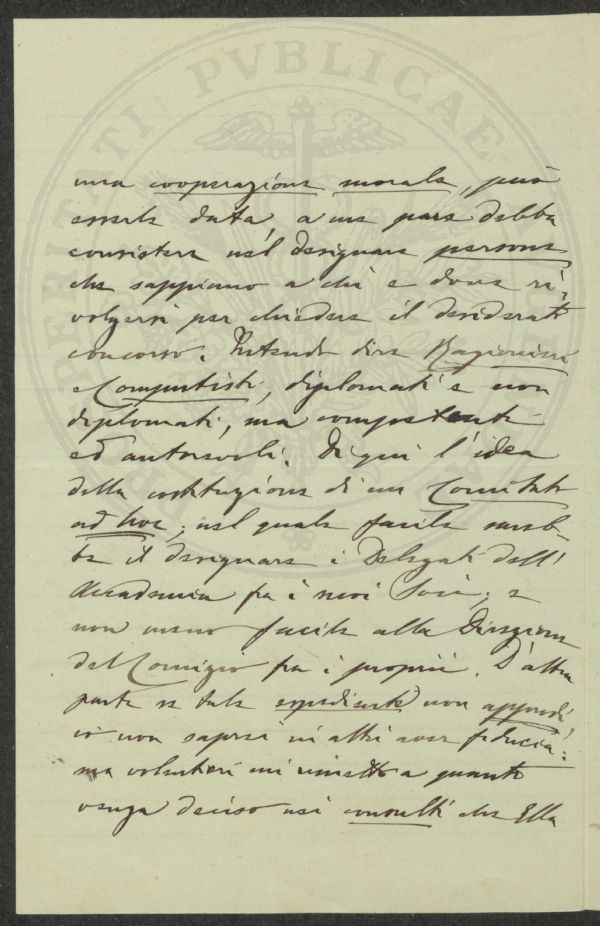 una cooperazione morale, può
essere data, a me pare debba
consistere nel designare persone
che sappiano a chi e dove ri-
volgersi per chiedere il desiderato
concorso. Intendo dire Ragionieri
e Computisti, diplomati e non
diplomati, ma competenti
ed autorevoli. Di qui l'idea
della costituzione di un Comitato
ad hoc, nel quale facile sareb-
be il designare i Delegati dell'
Accademia fra i suoi Soci, e
non meno facile alla Direzione
del Comizio fra i proprii. D'altra
parte se tale espediente non approdi
io non saprei in altri aver fiducia:
ma volentieri mi rimetto a quanto
venga deciso nei consulti che Ella
PERITATI PVBLICAE